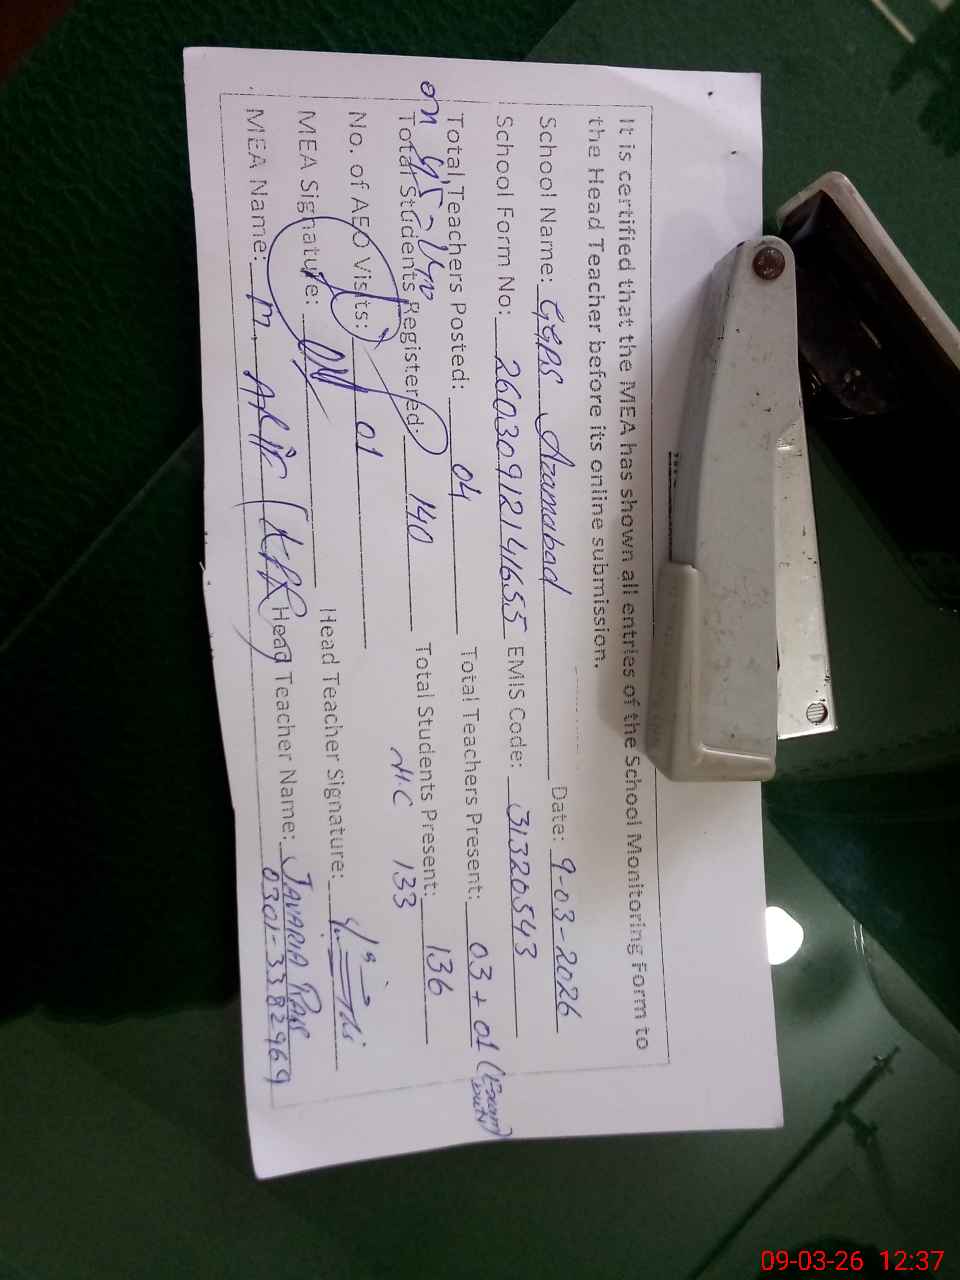 It is certified that the MEA has shown all entries of the School Monitoring Form to
the Head Teacher before its online submission.
School Name: GGPS Azamabad Date: 9-03-2026
School Form No: 26030912141655 EMIS Code: 31320543
Total Teachers Posted: 04 Total Teachers Present: 03 + 01 (Exam Duty)
Total Students Registered: 140 Total Students Present: 136
H.C 133
No. of AEO Visits: 01
MEA Signature: Head Teacher Signature:
MEA Name: M. Arif Head Teacher Name: JAVARIA
0301-3382969
09-03-26 12:37